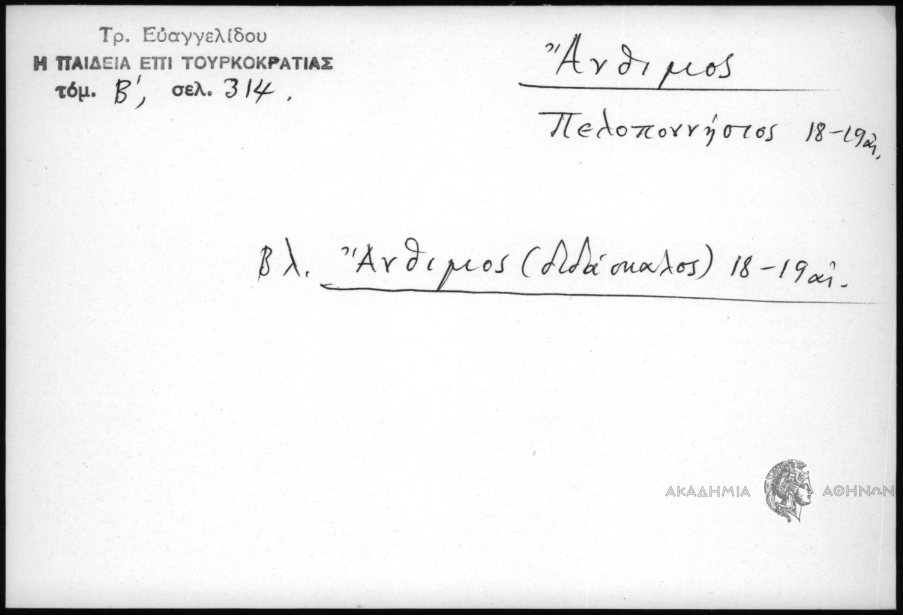 Τρ. Εὐαγγελίδου
Η ΠΑΙΔΕΙΑ ΕΠΙ ΤΟΥΡΚΟΚΡΑΤΙΑΣ
τόμ. Β', σελ. 314.
Ἄνθιμος
Πελοποννήσιος 18-19 αἰ.
Βλ. Ἄνθιμος (διδάσκαλος) 18-19 αἰ.
ΑΚΑΔΗΜΙΑ ΑΘΗΝΩΝ